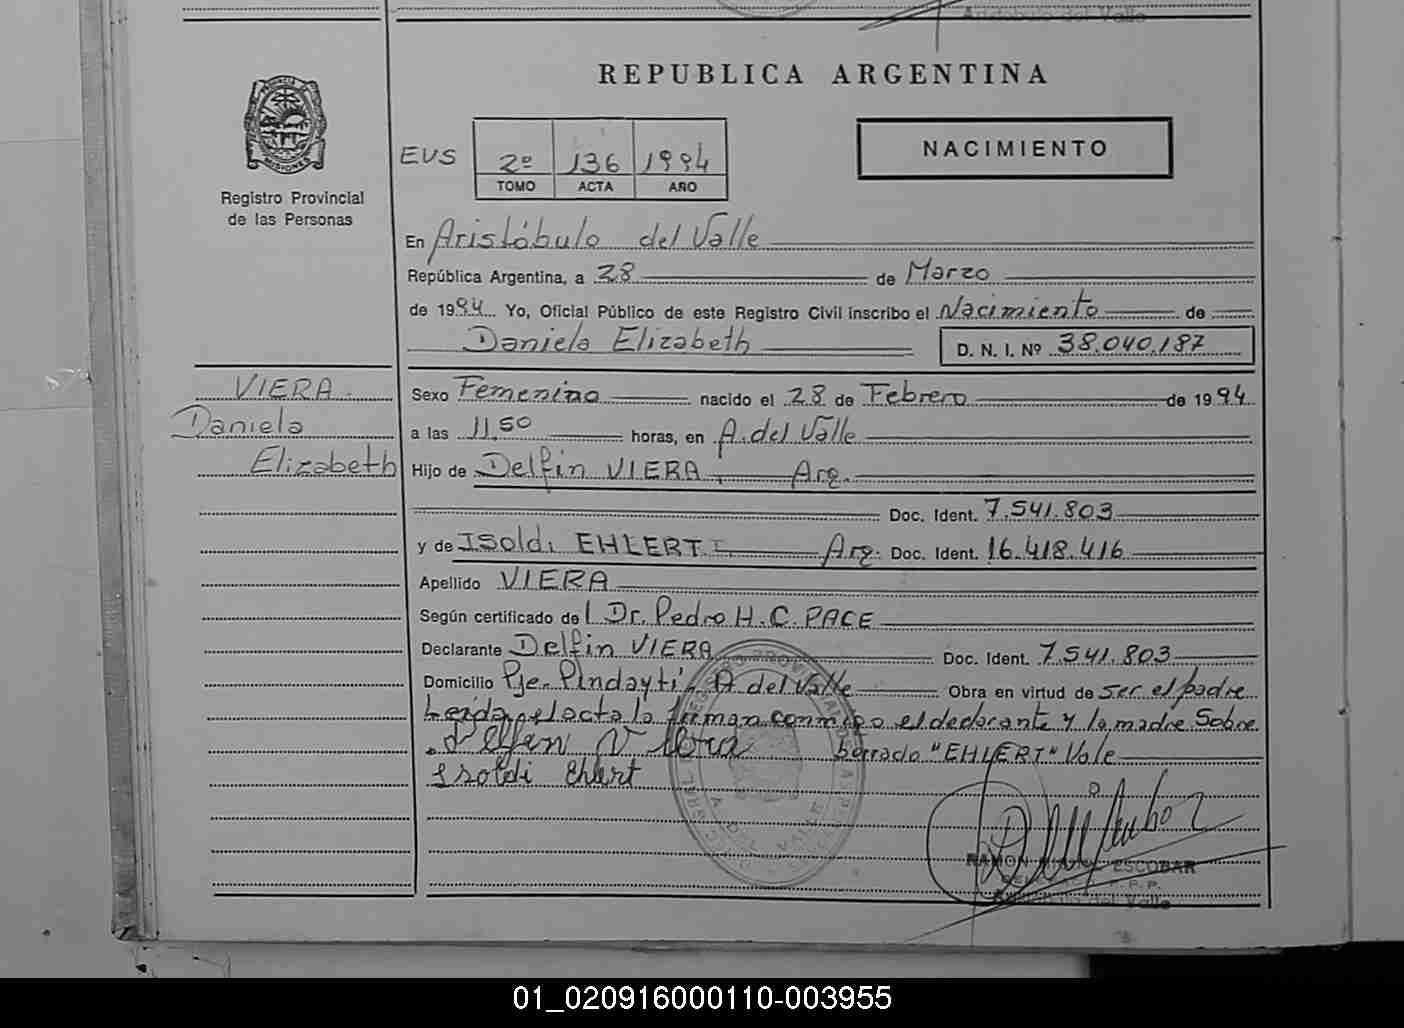 Aristobulo del Valle
REPUBLICA ARGENTINA
MISIONES
Registro Provincial
de las Personas
EVS 2º 136 1994
TOMO ACTA AÑO
NACIMIENTO
En Aristóbulo del Valle
República Argentina, a 28 de Marzo
de 1994 Yo, Oficial Público de este Registro Civil inscribo el Nacimiento de
Daniela Elizabeth D. N. I. Nº 38.040.187
VIERA
Daniela
Elizabeth
Sexo Femenino nacido el 28 de Febrero de 1994
a las 11,50 horas, en A. del Valle
Hijo de Delfin VIERA, Arg.
Doc. Ident. 7.541.803
y de Isoldi EHLERT Arg. Doc. Ident. 16.418.416
Apellido VIERA
Según certificado del Dr. Pedro H. C. PACE
Declarante Delfin VIERA Doc. Ident. 7.541.803
Domicilio Pje. Pindaytí, A. del Valle Obra en virtud de ser el padre
Leída el acta la firman conmigo el declarante y la madre. Sobre
Delfin Viera borrado "EHLERT" Vale
Isoldi Ehlert
RAMON ESCOBAR
Aristobulo del Valle
01_020916000110-003955